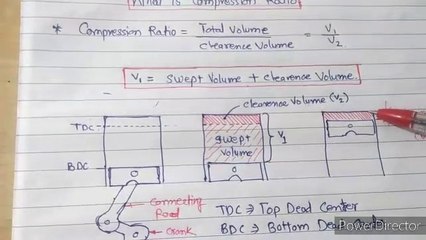 What is Compression Ratio
* Compression Ratio = Total Volume / Clearence Volume = V1 / V2
V1 = Swept Volume + Clearence Volume
clearence Volume (V2)
TDC
swept
Volume
V1
BDC
Connecting
Rod
Crank
TDC ⇒ Top Dead Center
BDC ⇒ Bottom Dead
PowerDirector